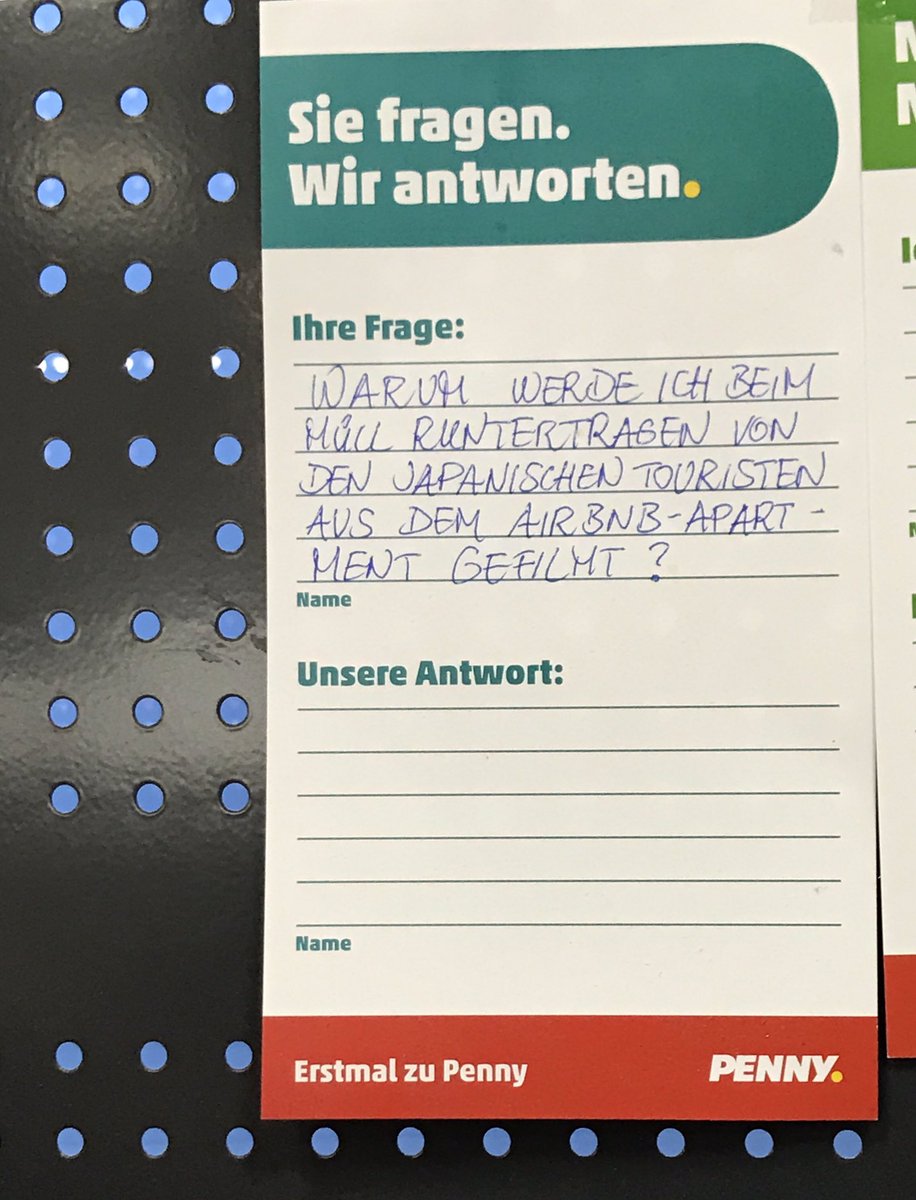 Sie fragen.
Wir antworten.
Ihre Frage:
WARUM WERDE ICH BEIM
MÜLL RUNTERTRAGEN VON
DEN JAPANISCHEN TOURISTEN
AUS DEM AIRBNB-APART-
MENT GEFILMT?
Name
Unsere Antwort:
Name
Erstmal zu Penny
PENNY.